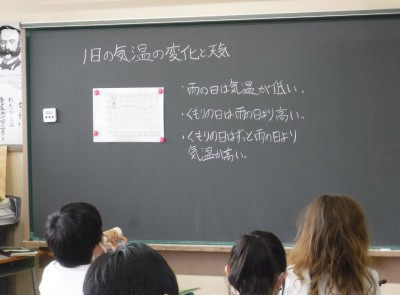 1日の気温の変化と天気
・雨の日は気温が低い。
・くもりの日は雨の日より高い。
・くもりの日はずっと雨の日より
気温が高い。